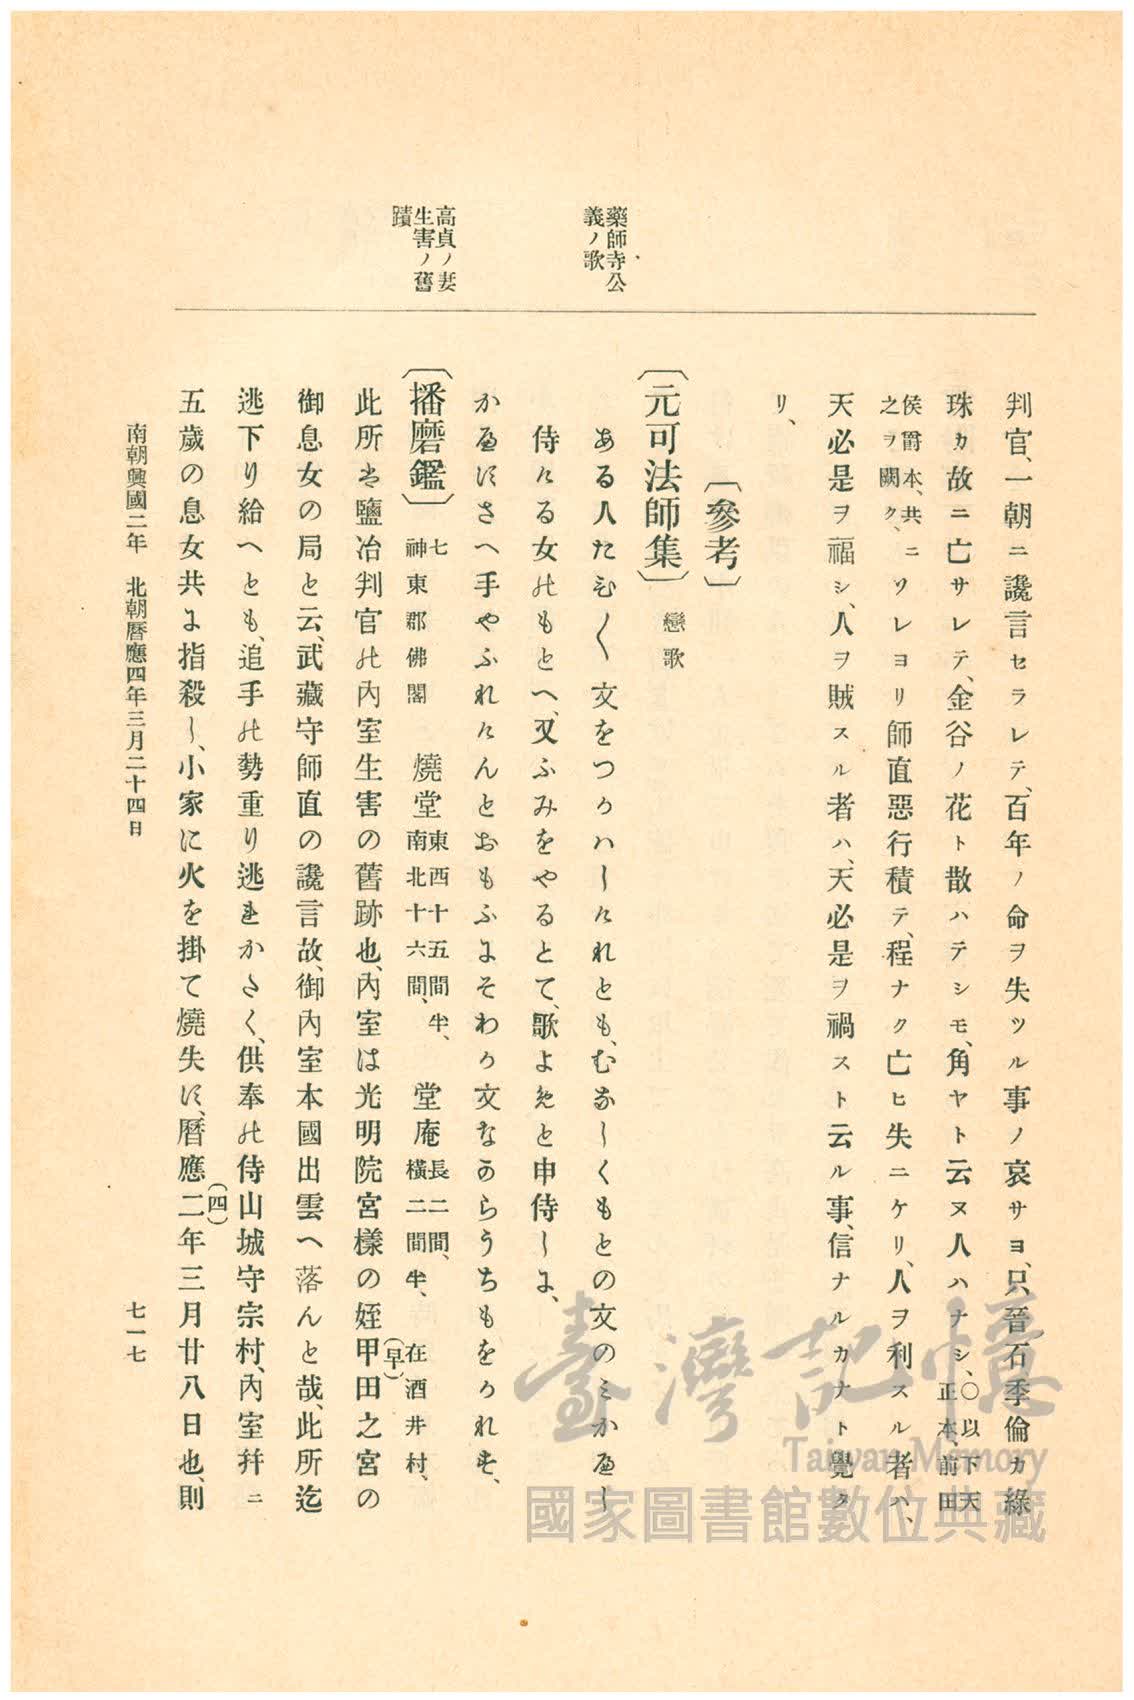 藥師寺公
義ノ歌
高貞ノ妻
生害ノ舊
蹟
判官、一朝ニ讒言セラレテ、百年ノ命ヲ失ツル事ノ哀サヨ、只晉石季倫カ綠
珠カ故ニ亡サレテ、金谷ノ花ト散ハテシモ、角ヤト云ヌ人ハナシ、〇以下天正本、前田
侯爵本、共ニ之ヲ闕ク、ソレヨリ師直惡行積テ、程ナク亡ヒ失ニケリ、人ヲ利スル者ハ、
天必是ヲ福シ、人ヲ賊スル者ハ、天必是ヲ禍スト云ル事、信ナルカナト覺タ
リ、
〔參考〕
〔元可法師集〕戀歌
ある人たひ〳〵文をつかハしけれとも、むなしくもとの文のミかへし
侍ける女のもとへ、又ふみをやるとて、歌よめと申侍しに、
かへすさへ手やふれけんとおもふにそわか文なからうちもをかれす、
〔播磨鑑〕七神東郡佛閣 燒堂東西十五間半、南北十六間、 堂庵長二間、横二間半、 在酒井村、
此所は鹽冶判官の內室生害の舊跡也、內室は光明院宮樣の姪甲(早)田之宮の
御息女の局と云、武藏守師直の讒言故、御內室本國出雲へ落んと哉、此所迄
逃下り給へとも、追手の勢重り逃れかたく、供奉の侍山城守宗村、內室幷ニ
五歲の息女共に指殺し、小家に火を掛て燒失す、曆應二(四)年三月廿八日也、則
南朝興國二年 北朝曆應四年三月二十四日
七一七
臺灣記憶
Taiwan Memory
國家圖書館數位典藏